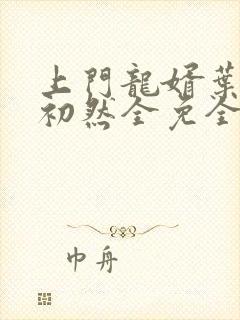 上門龍婿葉
初然全免全
巾舟